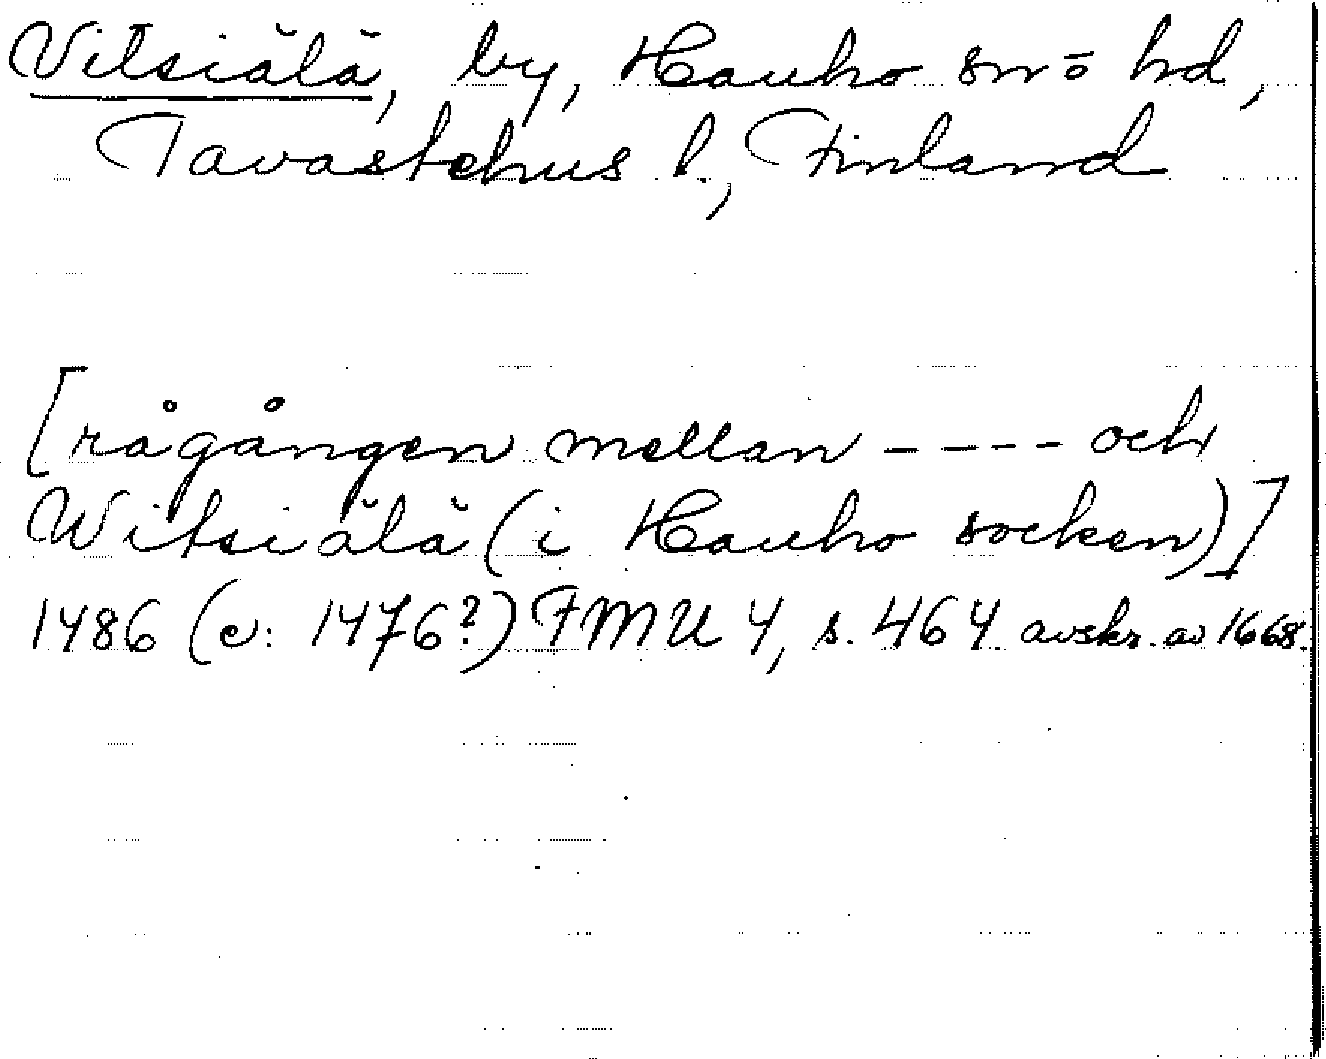 Vitsiälä, by, Hauho sn o hd,
Tavastehus l., Finland
[rågången mellan ---- och
Witsiälä (i Hauho socken)]
1486 (e: 1476?) FMU 4, s. 464 avskr. av 1668.